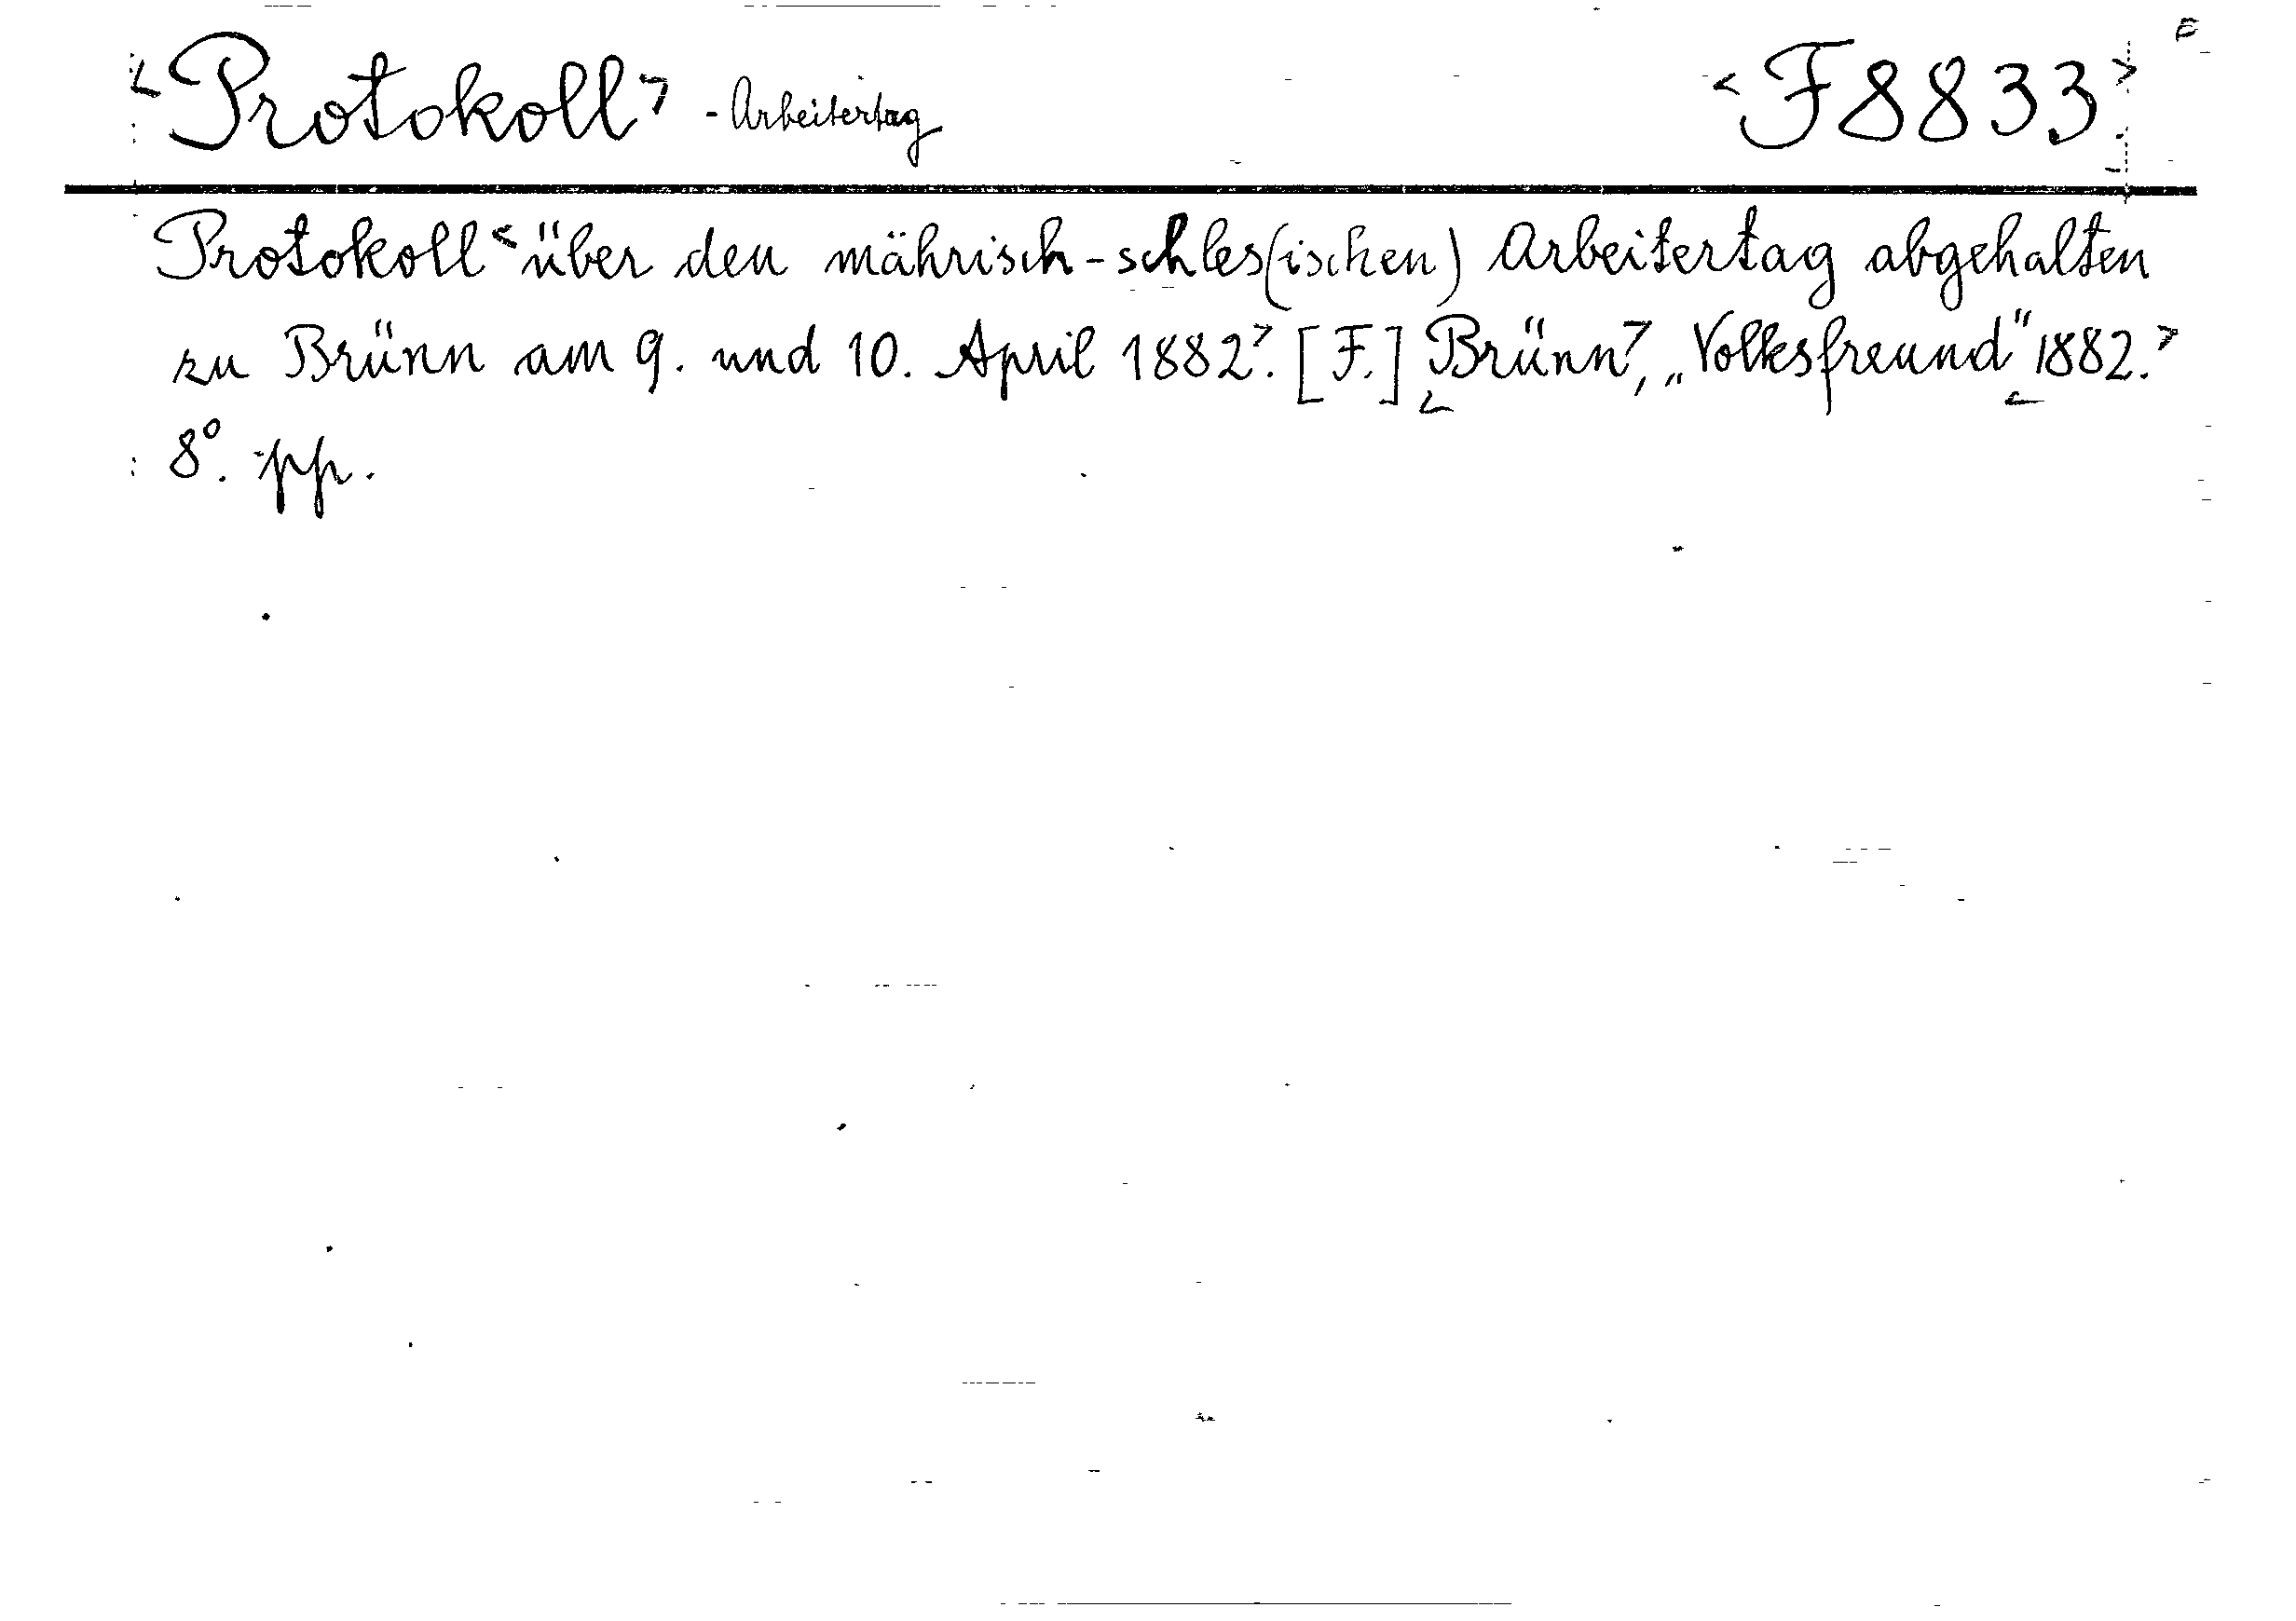 <Protokoll> - Arbeitertag <F8833> F
Protokoll < über den mährisch-schles(ischen) Arbeitertag abgehalten
zu Brünn am 9. und 10. April 1882>. [F.] <Brünn>, „Volksfreund" <1882.>
8°. pp.